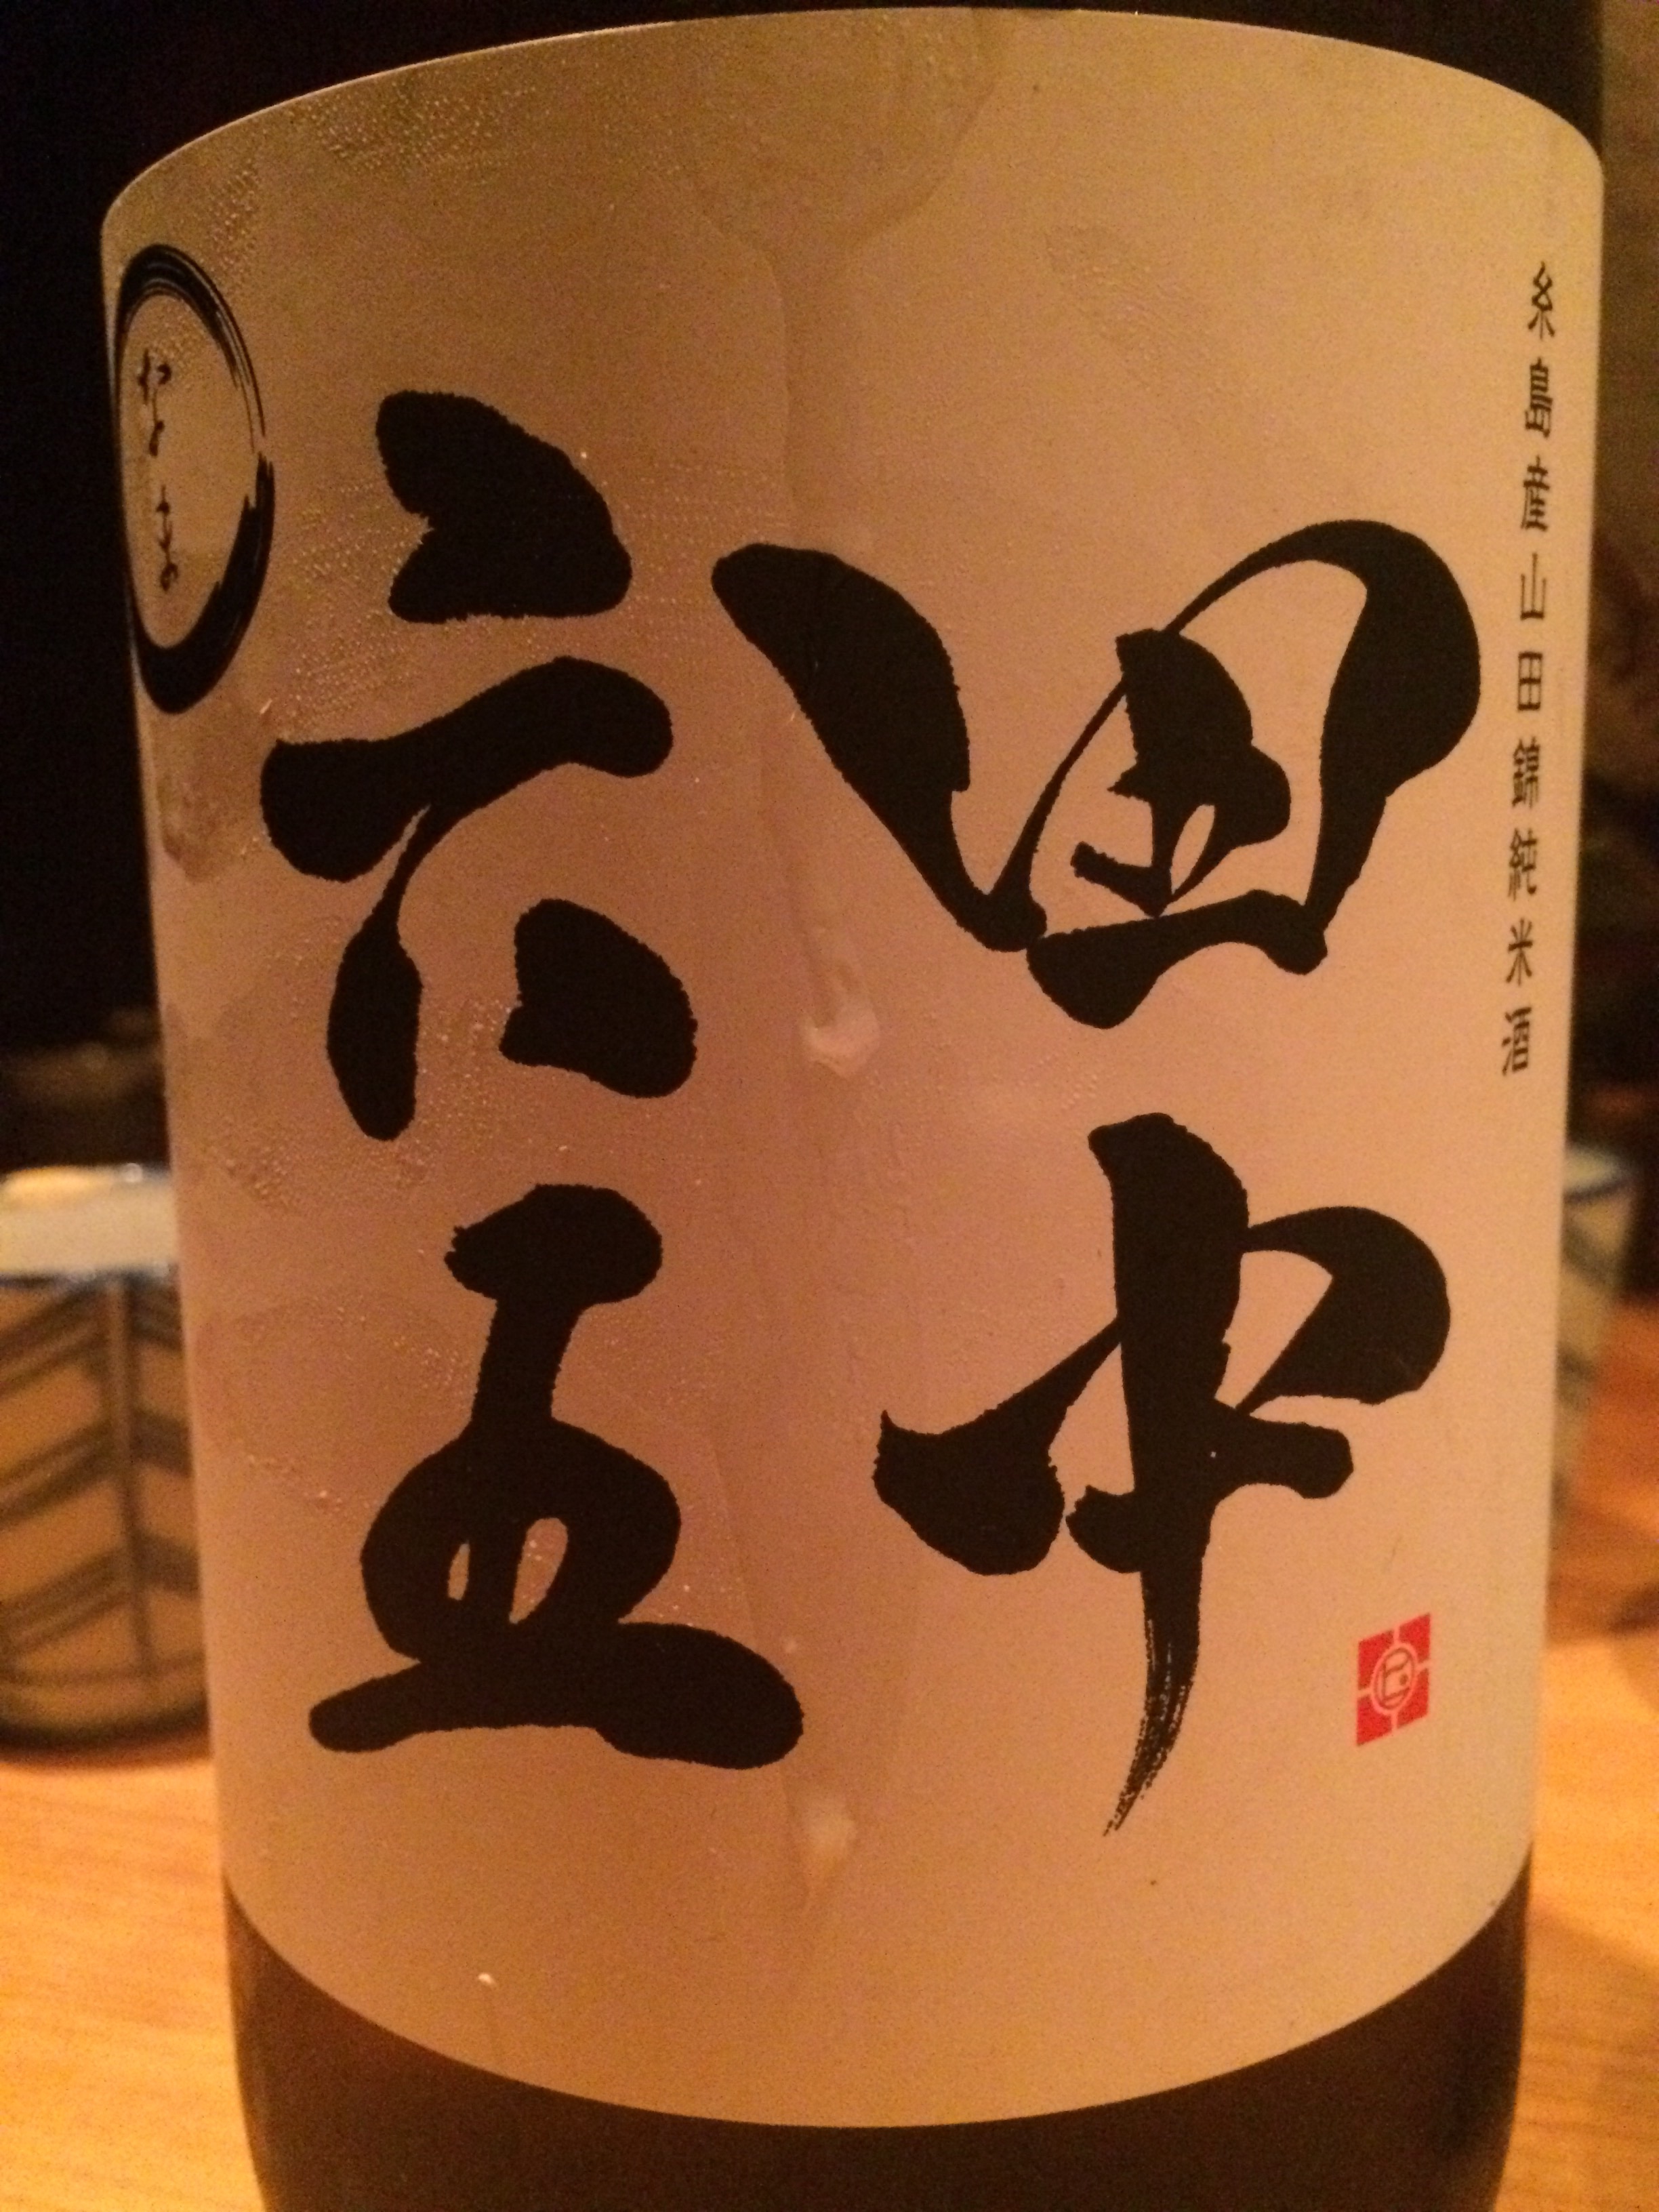 糸島産山田錦純米酒
田中
六五
なま